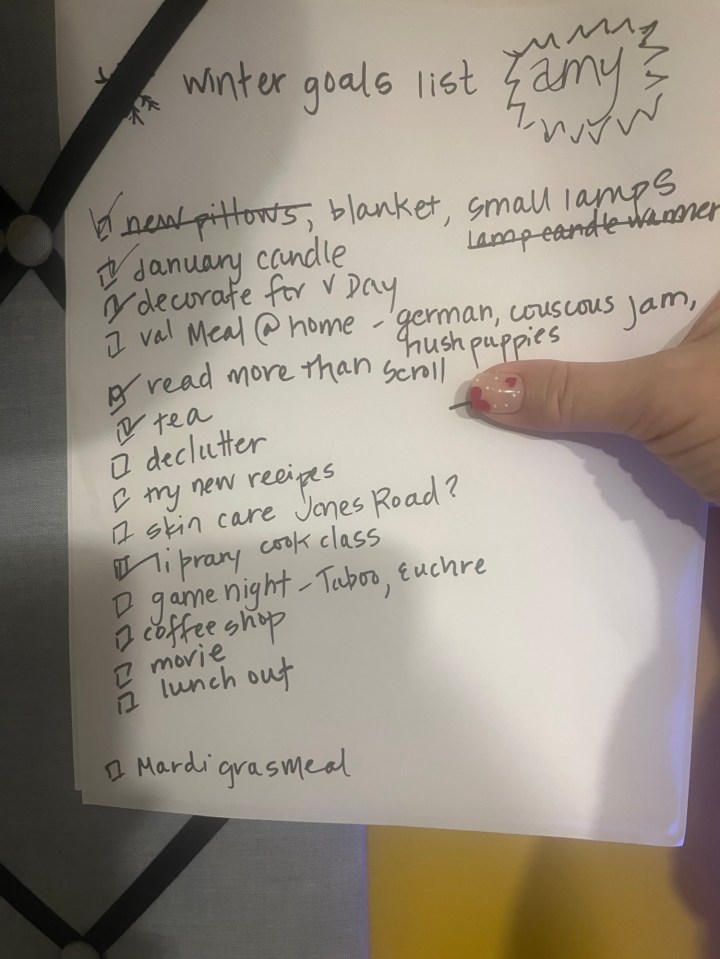 winter goals list amy
new pillows, blanket, small lamps
lamp candle warmer
January candle
decorate for V Day
val Meal @ home - german, couscous jam,
hushpuppies
read more than scroll
tea
declutter
try new recipes
skin care Jones Road?
library cook class
game night - Taboo, Euchre
coffee shop
movie
lunch out
Mardi gras meal